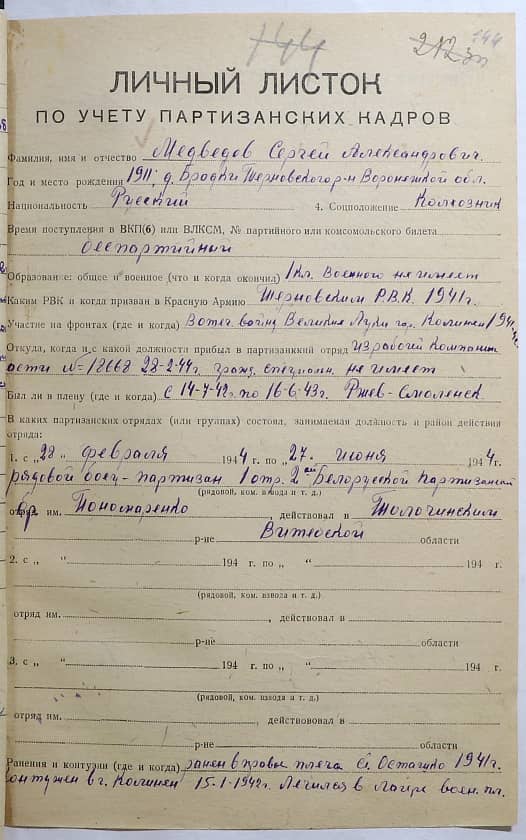 144
212
144
ЛИЧНЫЙ ЛИСТОК
ПО УЧЕТУ ПАРТИЗАНСКИХ КАДРОВ
Фамилия, имя и отчество Медведов Сергей Александрович.
Год и место рождения 1911, д. Бродки Терновского р-н Воронежской обл.
Национальность Русский 4. Соцположение Колхозник
Время поступления в ВКП(б) или ВЛКСМ, № партийного или комсомольского билета
беспартийный
Образование: общее и военное (что и когда окончил) 1 кл. Военного не имеет
Каким РВК и когда призван в Красную Армию Терновским Р.В.К. 1941 г.
Участие на фронтах (где и когда) В отеч. войну Великие Луки гор. Калинен 1941
Откуда, когда и с какой должности прибыл в партизанский отряд из рабочей Компании
ости №18668 28-2-44г. гражд. специальн. не имеет
Был ли в плену (где и когда) с 14-7-42г. по 16-6-43г. Ржев-Смоленск.
В каких партизанских отрядах (или группах) состоял, занимаемая должность и район действия
отряда:
1. с „28 “ февраля 1944 г. по „27. “ июня 1944 г.
рядовой боец-партизан 1 отр. 2ой Белорусской партизанской
(рядовой, ком. взвода и т. д.)
отряд бр. им. Пономаренко, действовал в Толочинском
р-не Витебской области
2. с „ “ 194 г. по „ “ 194 г.
(рядовой, ком. взвода и т. д.)
отряд им. , действовал в
р-не области
3. с „ “ 194 г. по „ “ 194 г.
(рядовой, ком. взвода и т. д.)
отряд им. , действововал в
р-не области
Ранения и контузии (где и когда) ранен в правое плечо ст. Осташко 1941г.
контужен в г. Калинен 15-1-1942г. Лечился в лагре воен. пл.